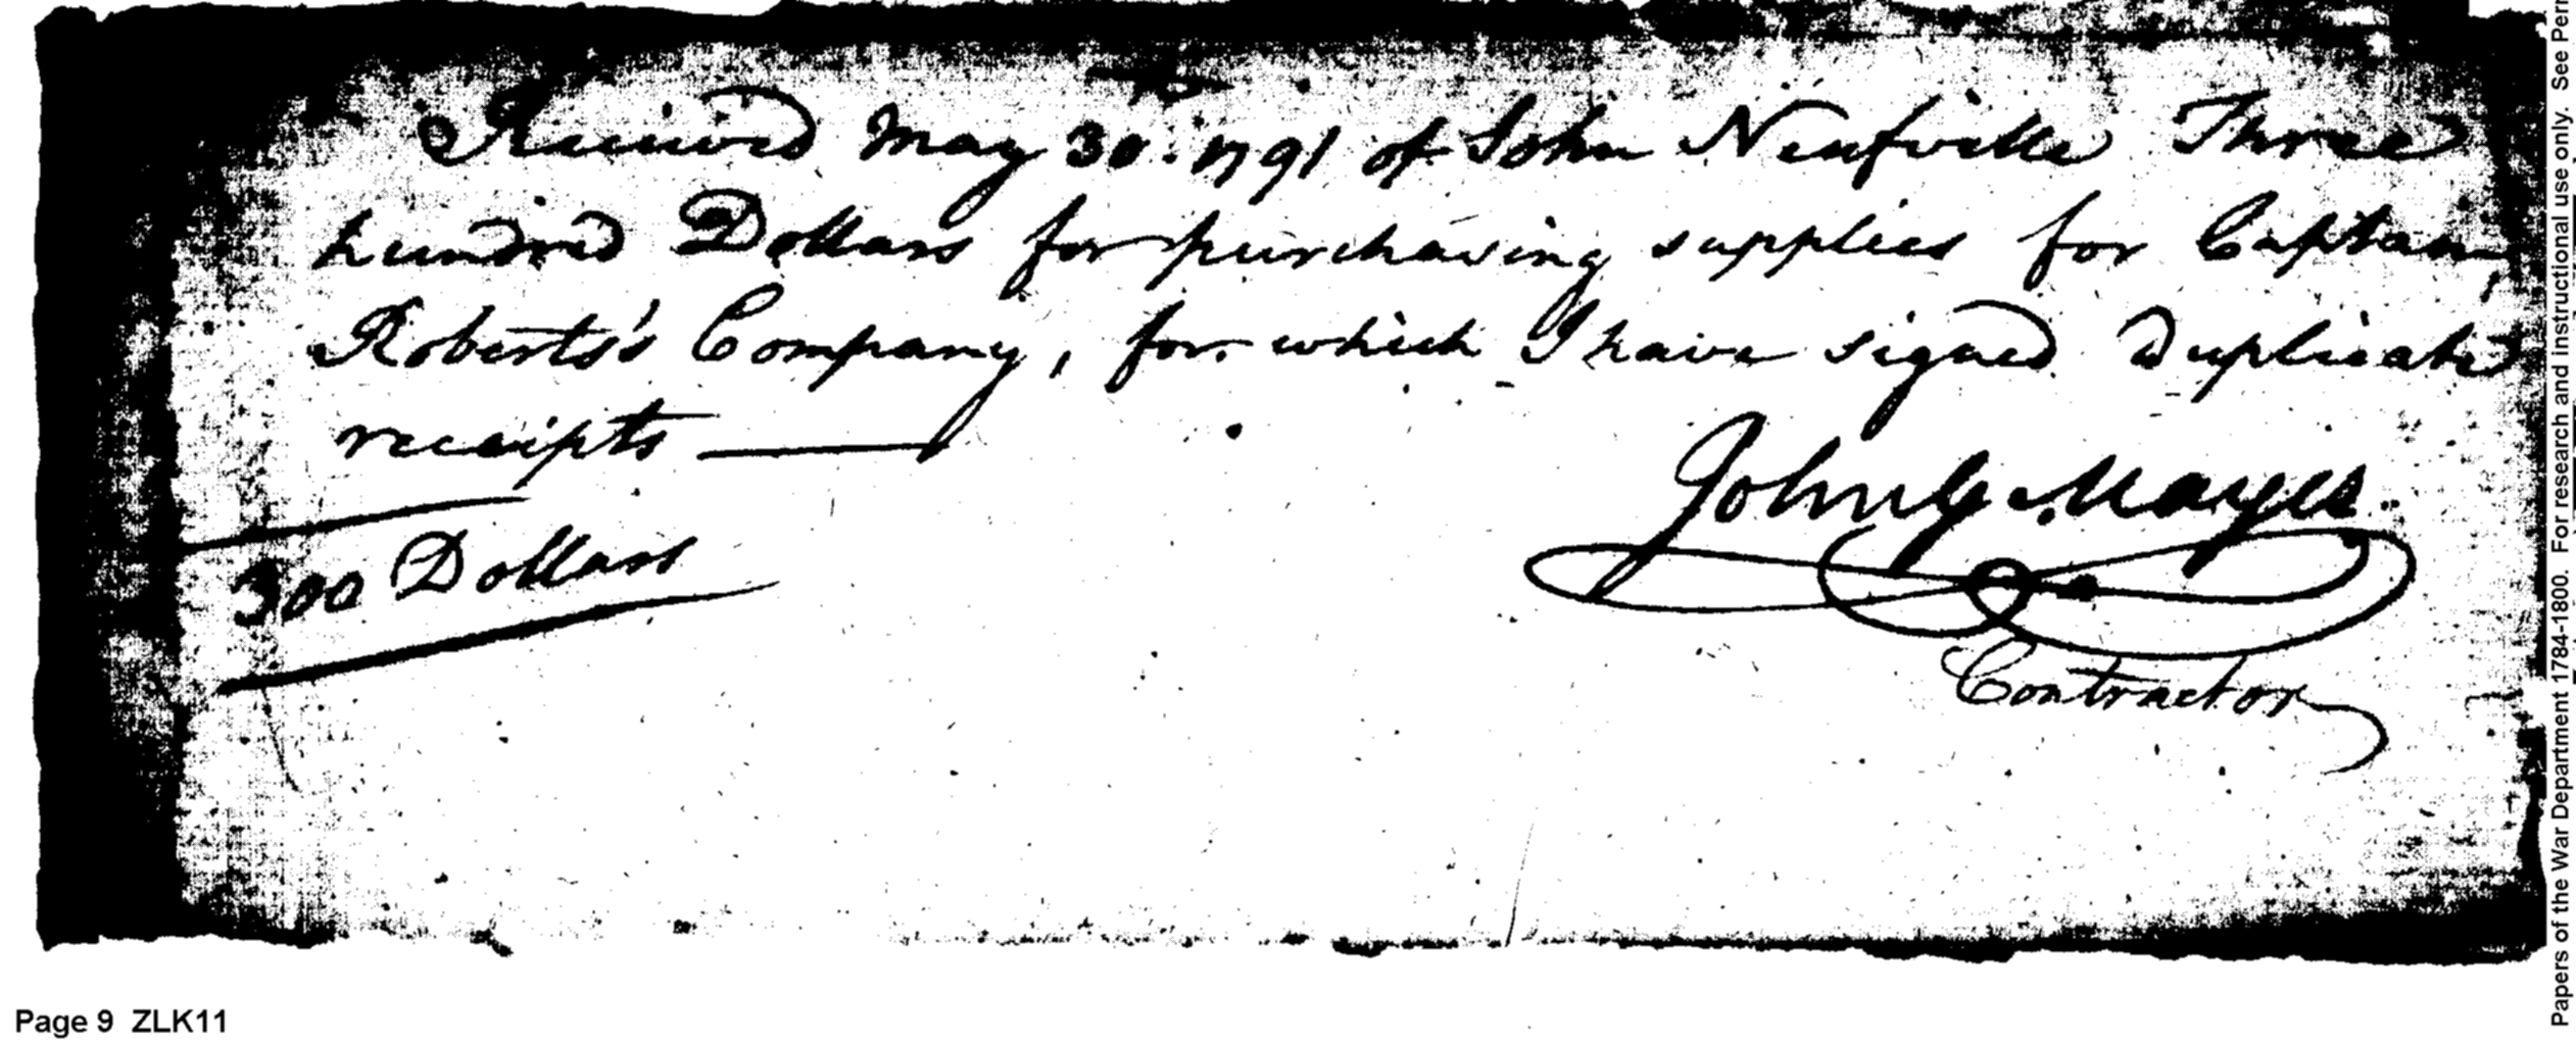 Received May 30. 1791 of John Neufville Three
hundred Dollars for purchasing supplies for Captain
Roberts's Company, for which I have signed Duplicate
receipts
300 Dollars
John G Mayes
Contractor
Page 9 ZLK11
Papers of the War Department 1784-1800. For research and instructional use only. See